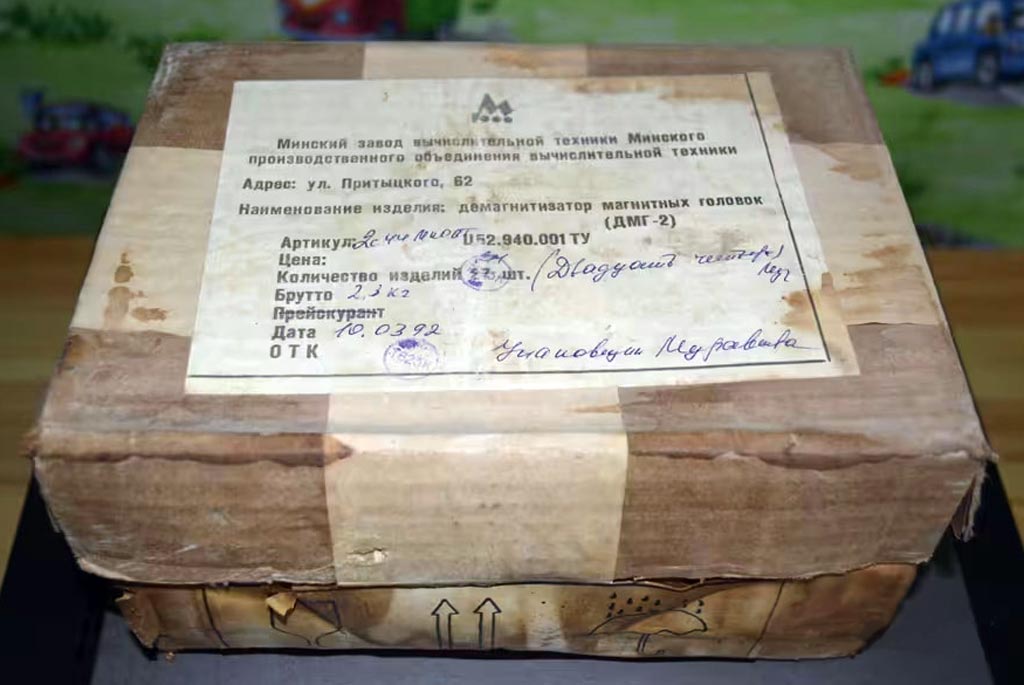 Минский завод вычислительной техники Минского
производственного объединения вычислительной техники
Адрес: ул. Притыцкого, 62
Наименование изделия: демагнитизатор магнитных головок
(ДМГ-2)
Артикул 52.940.001 ТУ
Цена:
Количество изделий шт. (Двадцать четыре)
Брутто 2,3 кг
Прейскурант
Дата 10.03.92
ОТК Упаковщик Муравьева